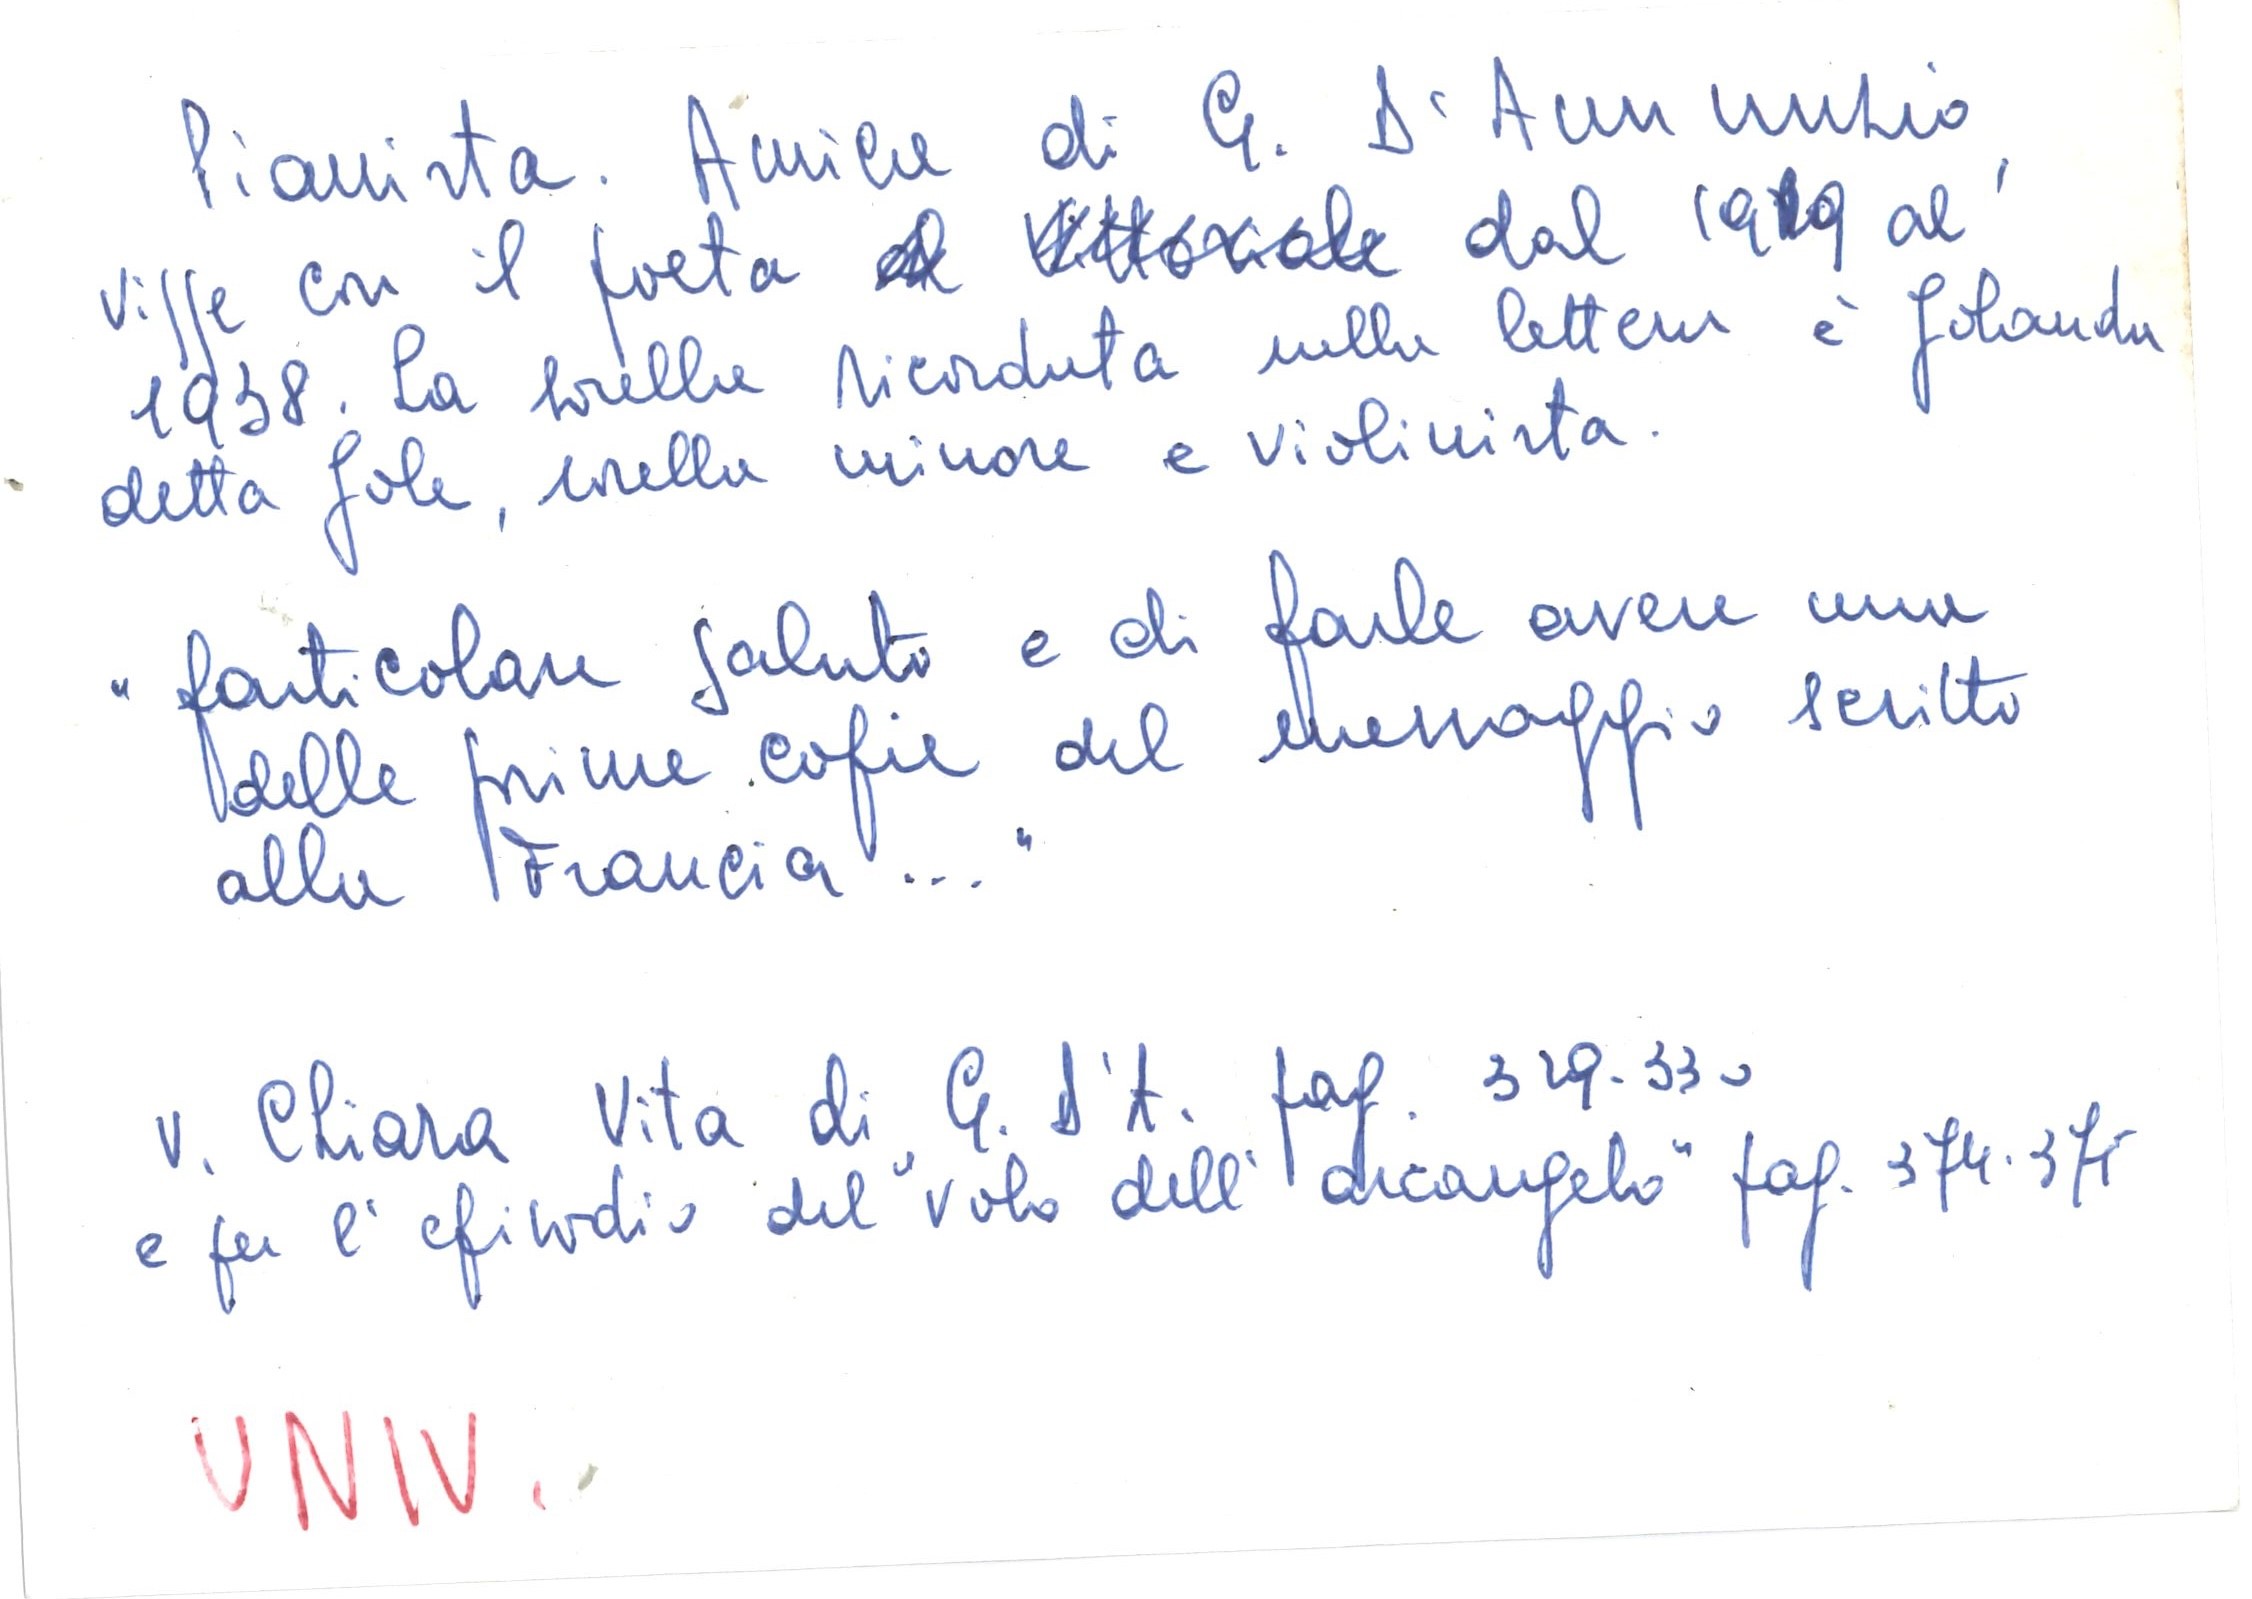 Pianista. Amica di G. D'Annunzio,
visse con il poeta al Vittoriale dal 1919 al
1938. La sorella ricordata nella lettera è Jolanda
detta Jole, sorella minore e violinista.
" particolare saluto e di farle avere una
delle prime copie del messaggio scritto
alla Francia ... "
v. Chiara Vita di G. D'A. pag. 329-330
e per l'episodio del "volo dell'arcangelo" pag. 374-375
UNIV.